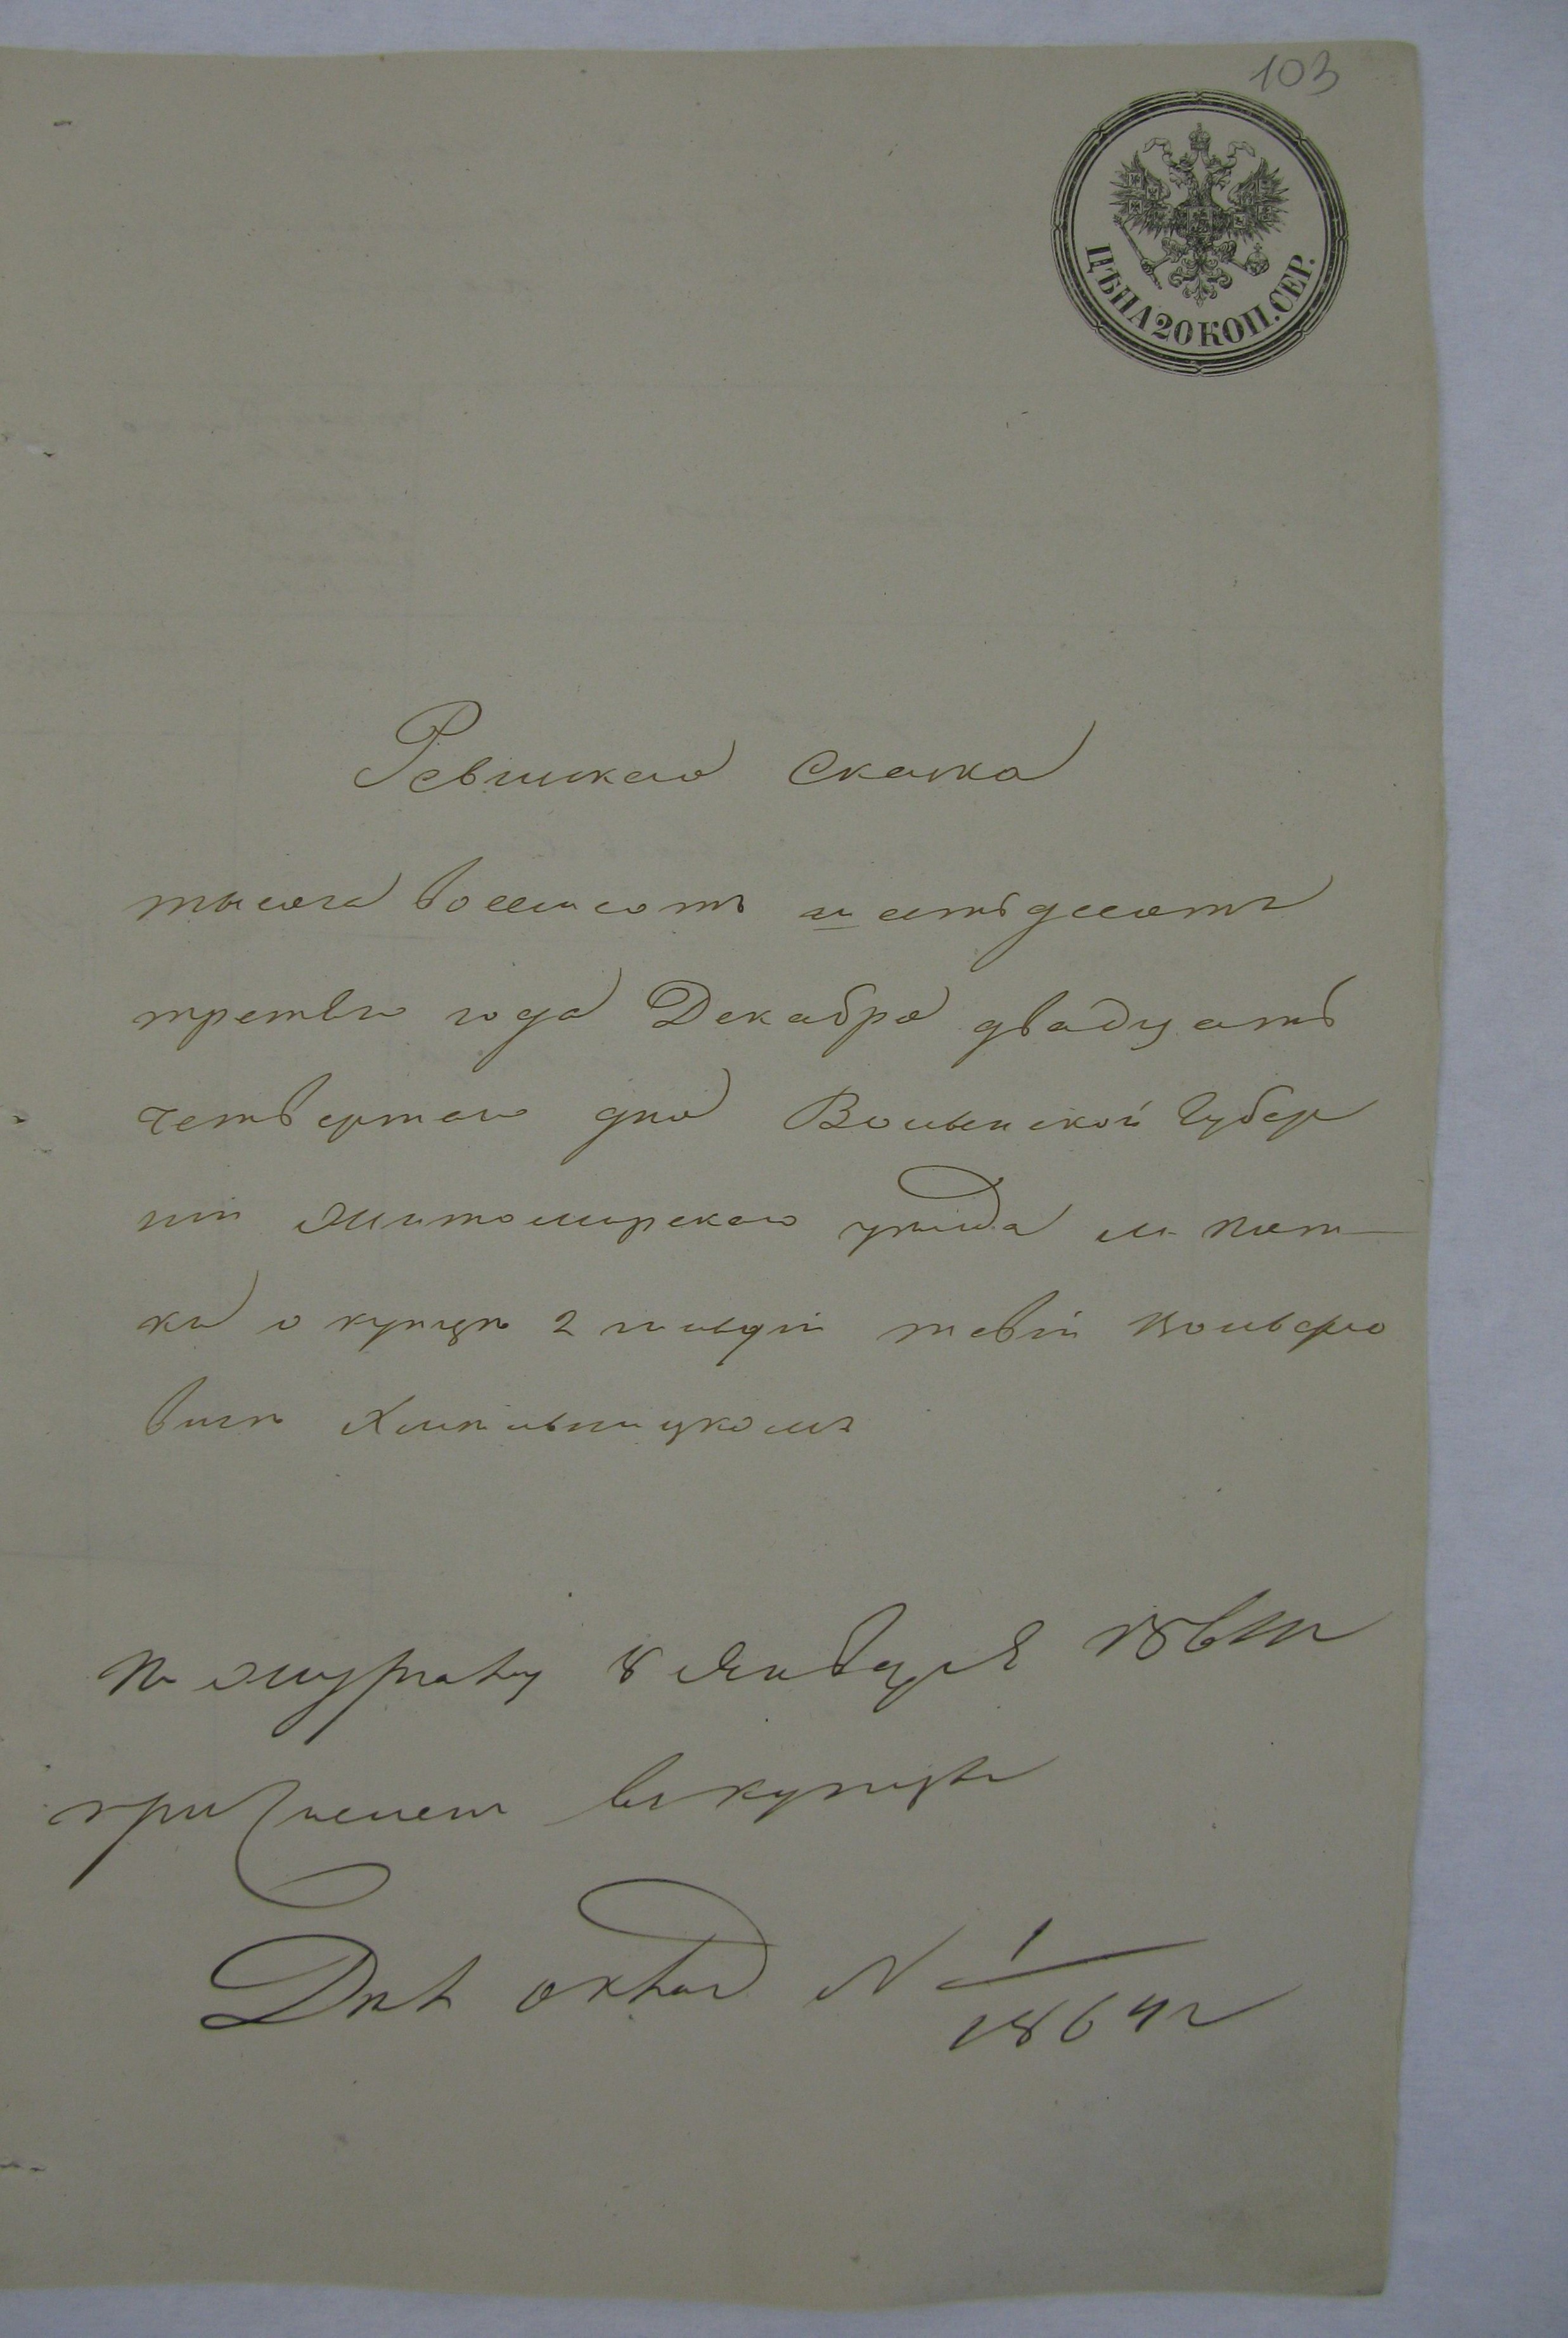 103
ЦѢНА 20 КОП. СЕР.
Ревизская Сказка
тысяча восемьсотъ шестьдесятъ
третьго года Декабря двадцать
четвертаго дня Волынской Губер
нiи Житомирскаго уѣзда м. Пят-
ки о купцѣ 2 гильдiи
вичѣ Хмѣльницкомъ
По журналу 8 Января
купцы
№ 1/1864 г